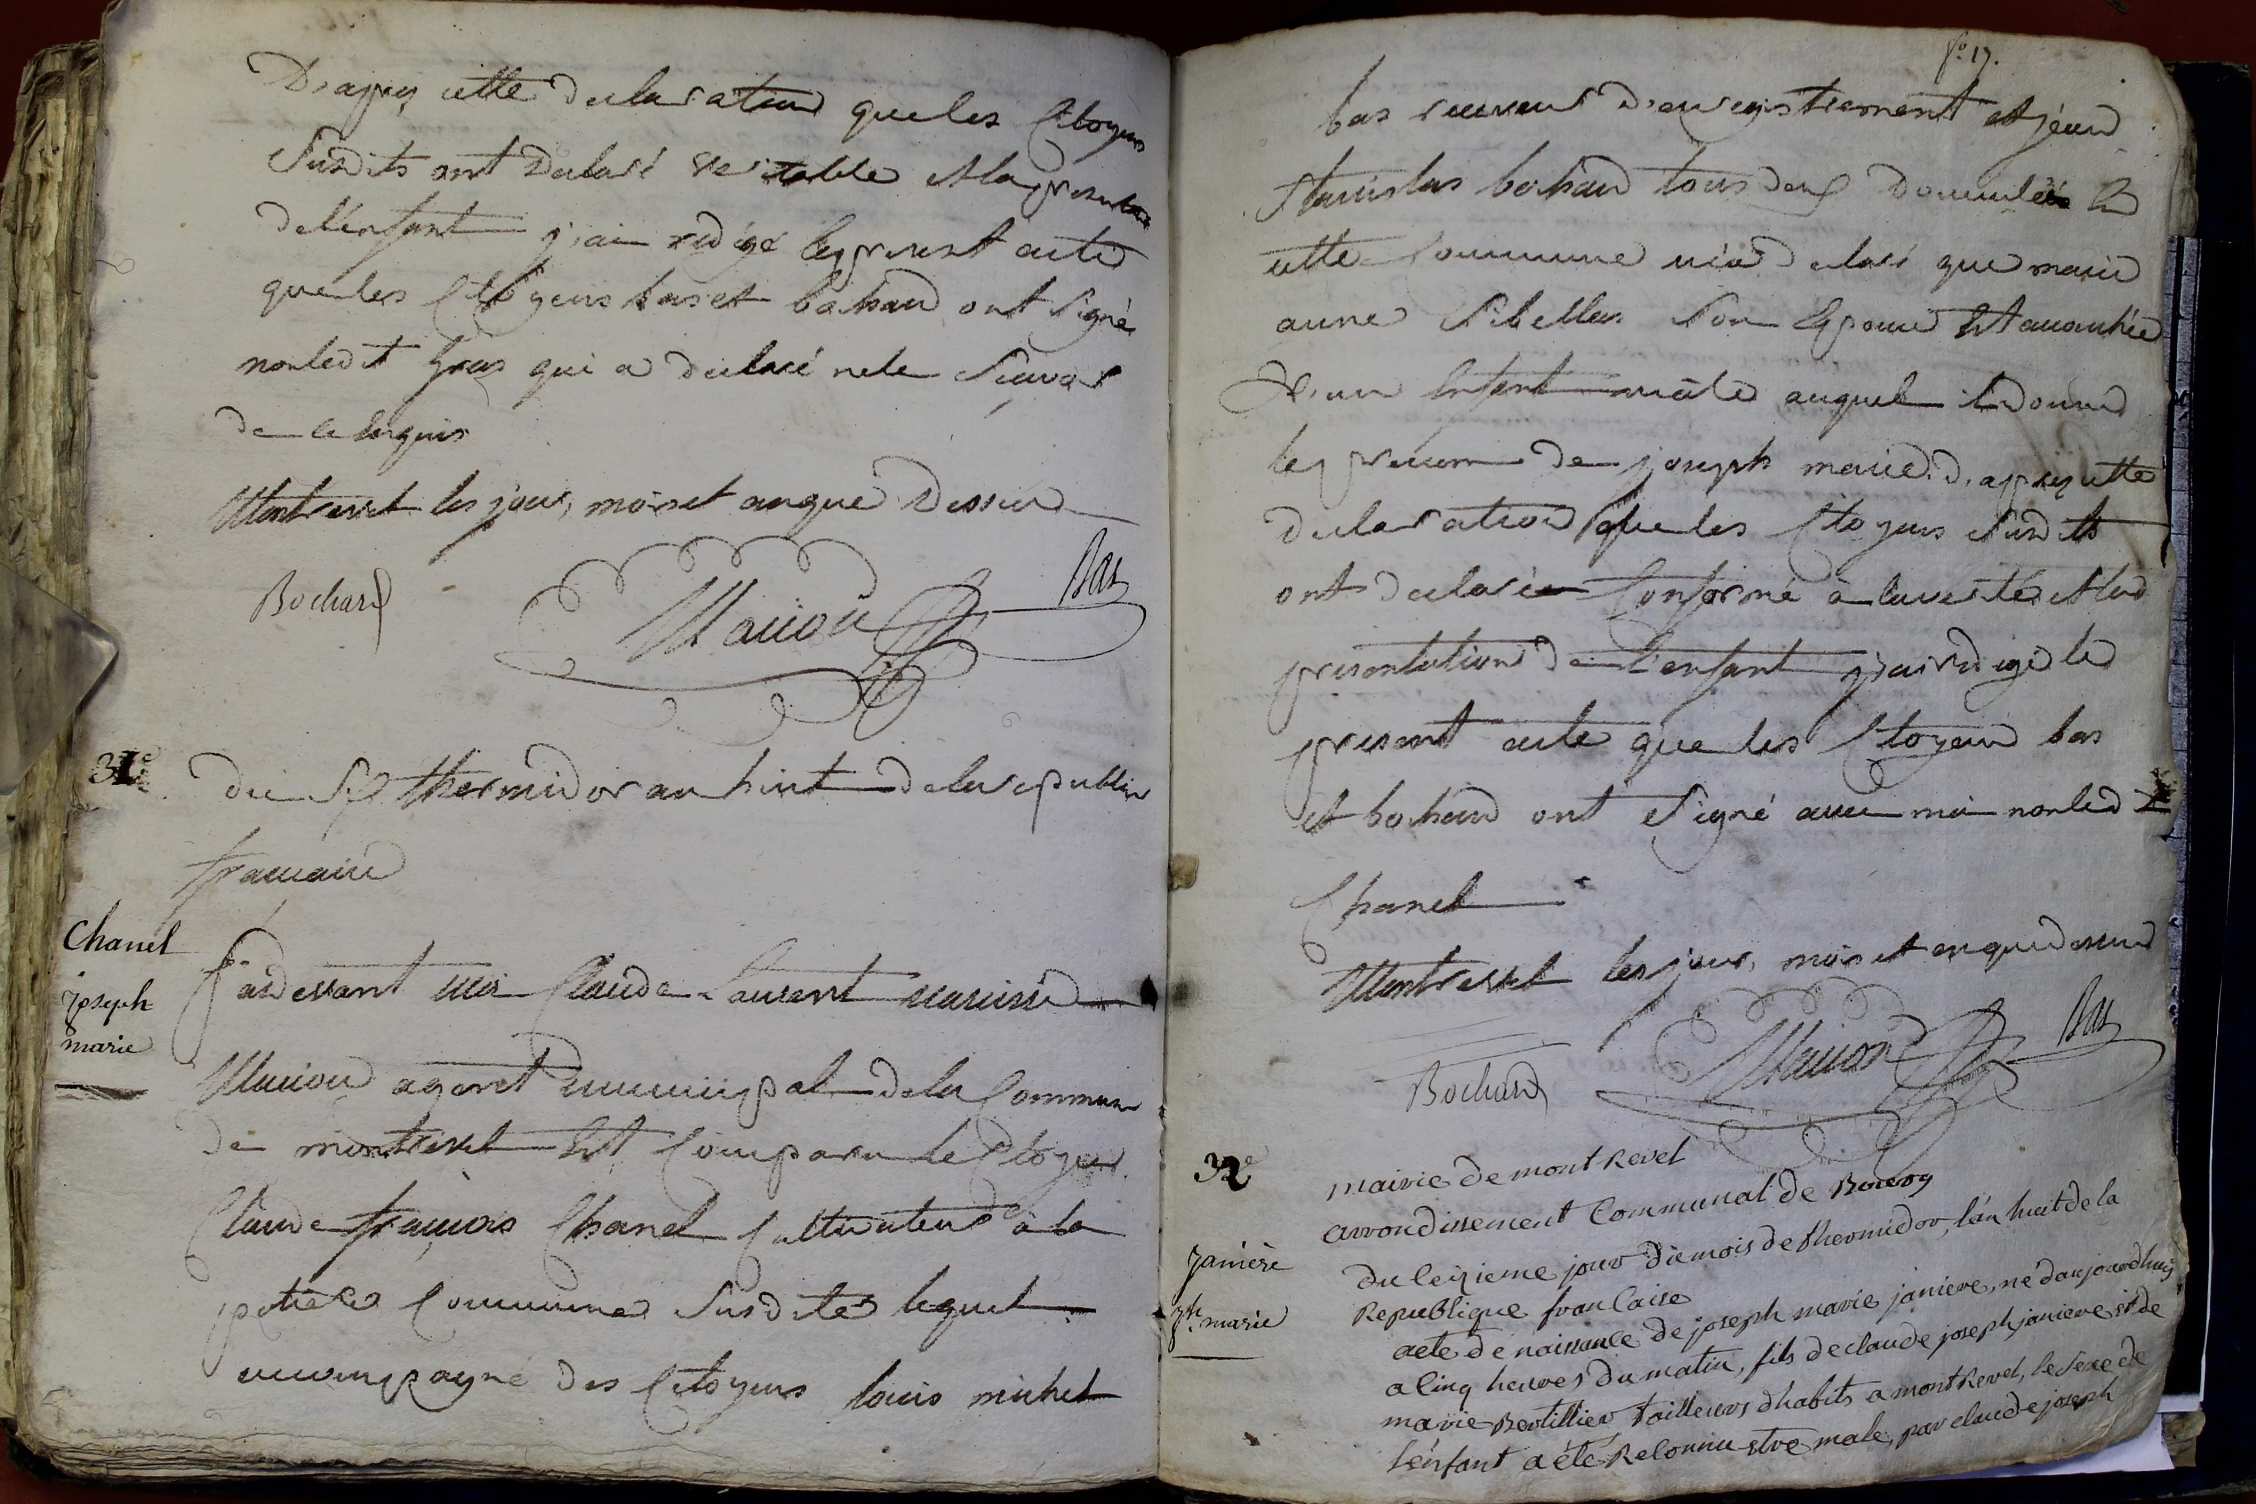 D'après cette declaration que les Citoyens
Susdits ont declaré veritable et la presentation
de l'enfant j'ai redigé le present acte
que les Citoyens bas et bochard ont Signé
non ledit gras qui a declaré ne le Sçavoir
de ce requis
Montrevel les jour, mois et an que Dessus
Bochard Maciou Bas
31e
du Six thermidor an huit de la republique
francaise
Chanel
joseph
marie
Pardevant moi Claude Laurent marie
Maciou agent municipal de la Commune
de montrevel Est Comparu le Citoyen
Claude françois Chanel Cultivateur à la
Commune Susdite lequel
accompagné des Citoyens louis michel
fo. 17.
bas receveur d'enregistrement et jean
Stanislas bochard tous deux Domiciliés En
cette Commune m'a declaré que marie
anne Sibellas Son Epouse Est accouchée
D'un Enfant mâle auquel il donne
le prenom de joseph marie. d'après cette
declaration que les Citoyens Susdits
ont declarée Conforme à la verité et la
presentation de l'enfant j'ai redigé le
present acte que les Citoyens bas
et bochard ont Signé avec moi non ledit
Chanel
Montrevel les jour, mois et an que dessus
Bochard Maciou Bas
32e
mairie de montRevel
arrondissement Communal de Bourg
janiere
jh. marie
du seizieme jour du mois de thermidor, l'an huit de la
Republique francaise
acte de naissance de joseph marie janiere, né d'aujourdhuy
a Cinq heures du matin, fils de claude joseph janiere et de
marie Bertillier tailleurs dhabits a montRevel, le Sexe de
l'enfant a été Reconnu etre male, par claude joseph